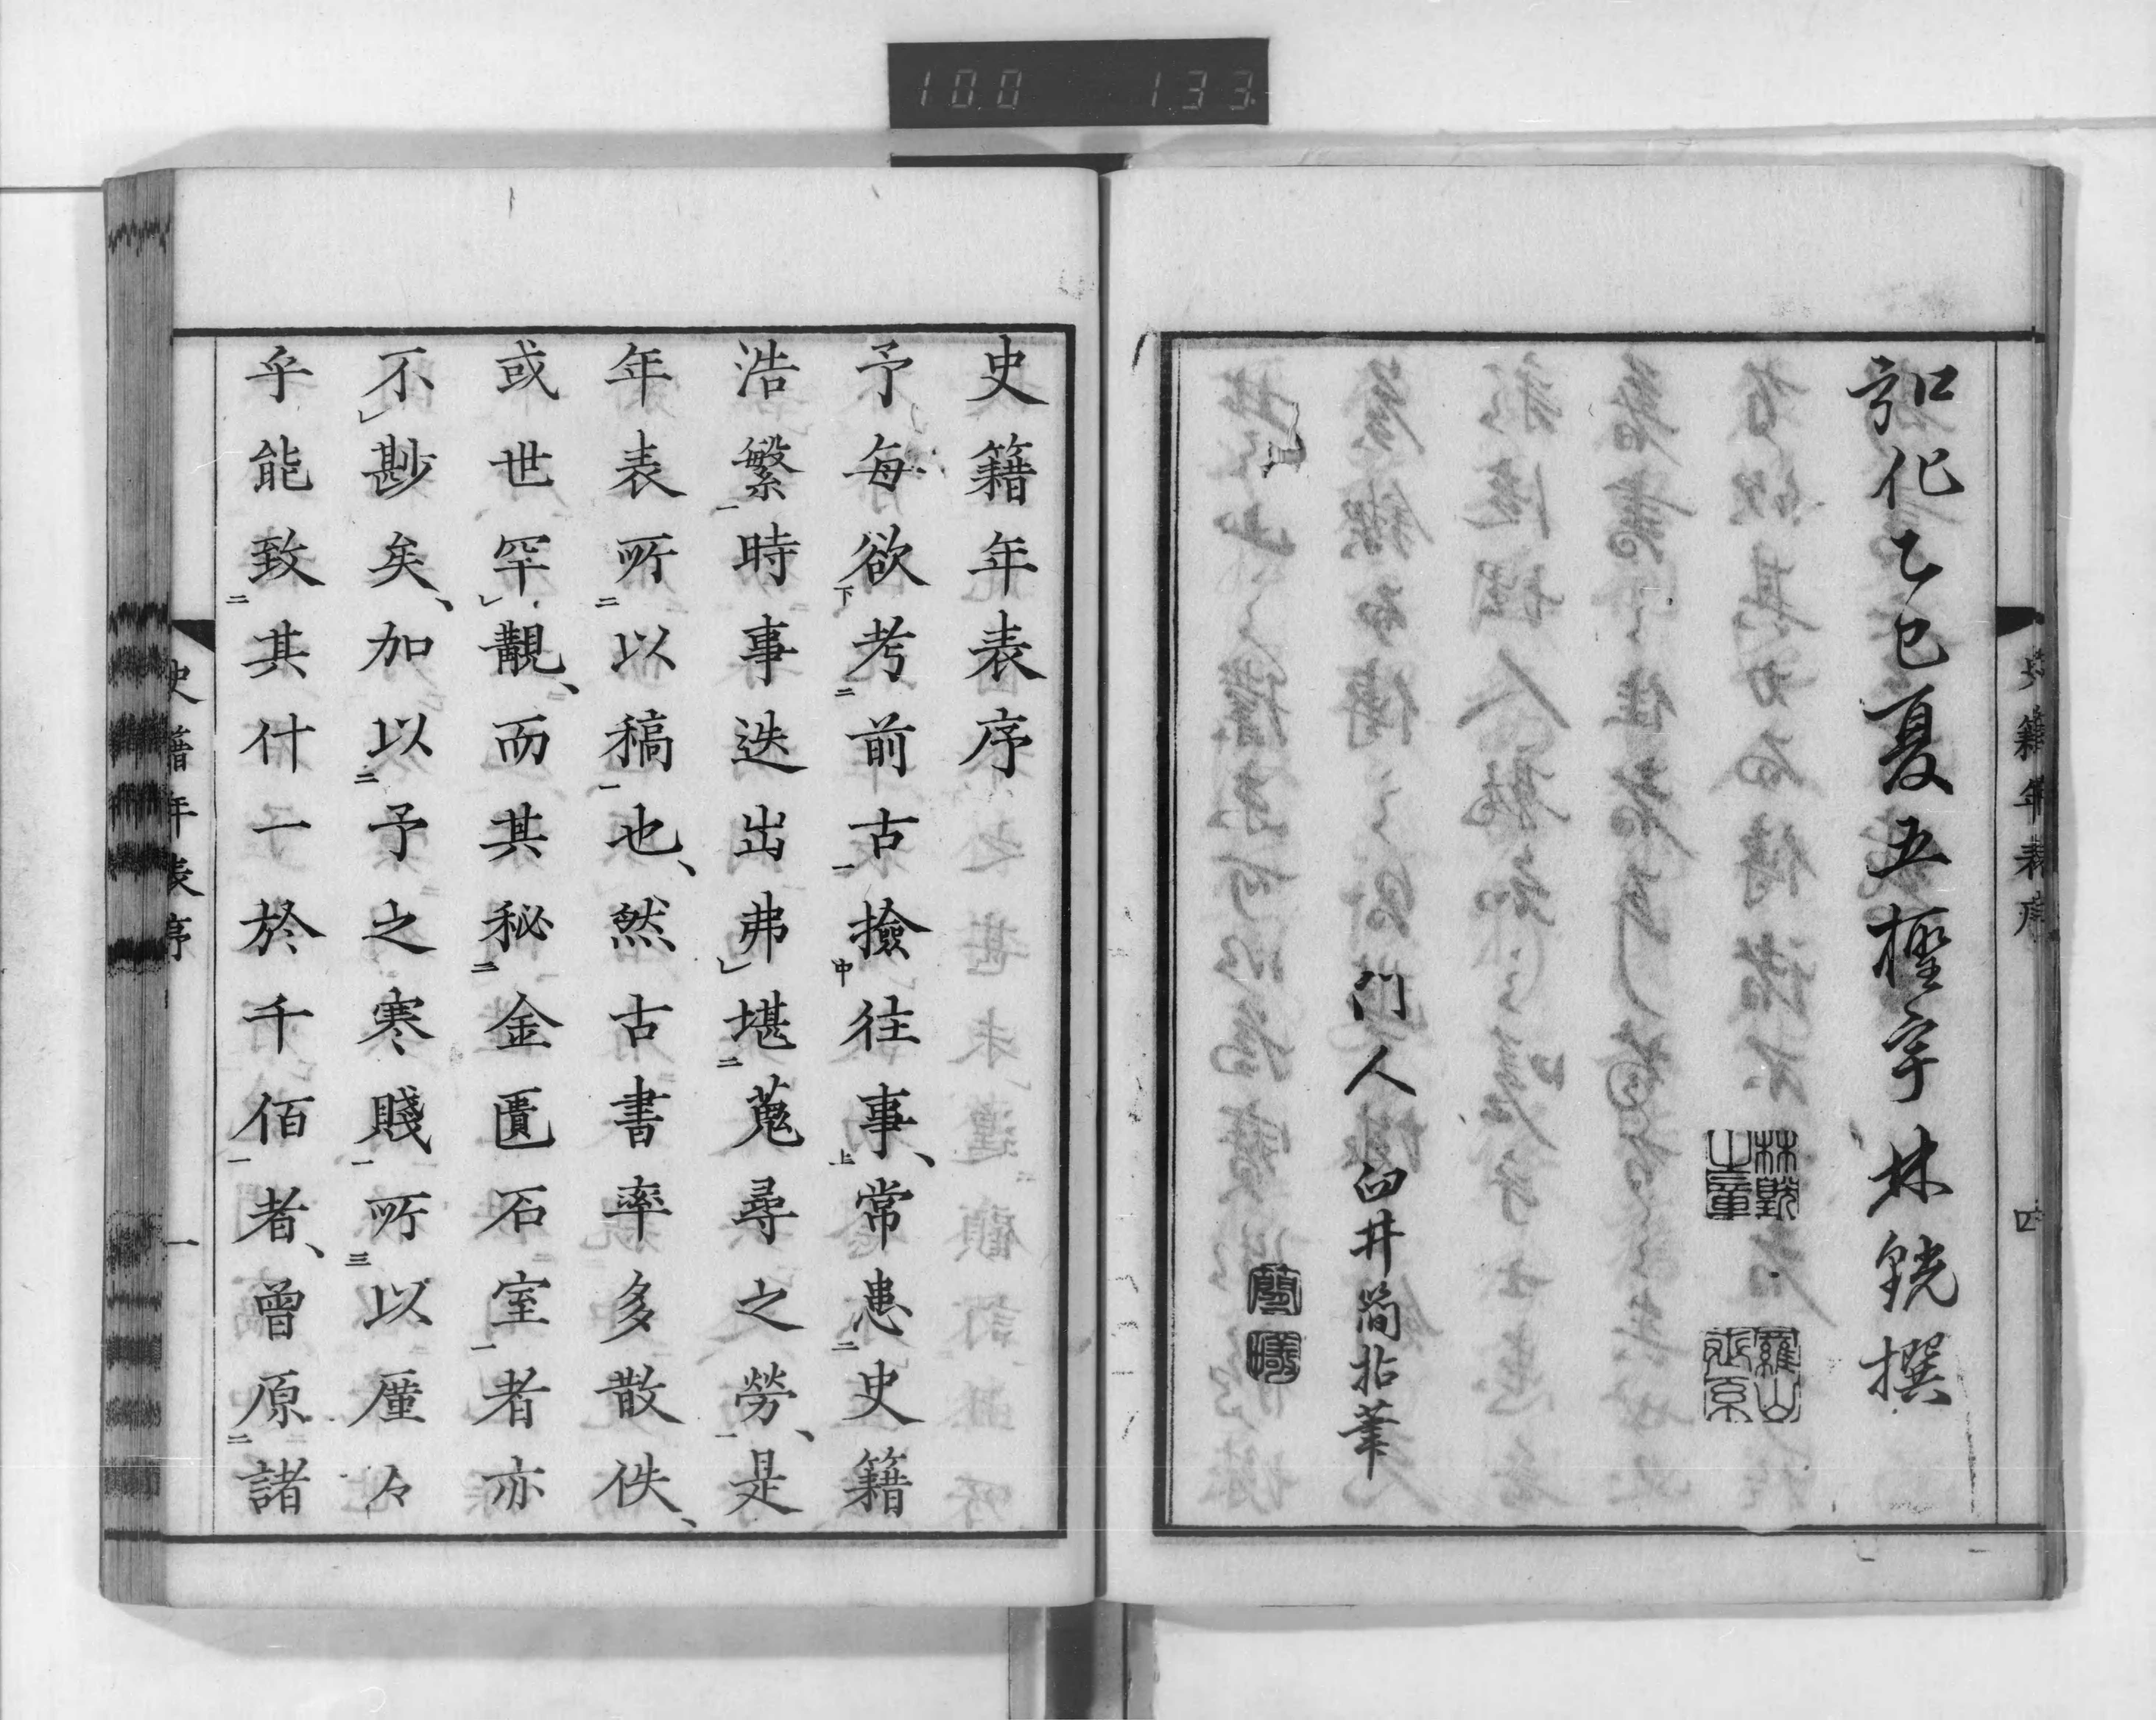 100 133
弘化乙巳夏五檉宇林銑撰
門人臼井簡拈筆
史籍年表序
四
史籍年表序
予毎欲考前古撿往事、常患史籍
浩繁時事迭出弗堪蒐尋之勞、是
年表所以稿也、然古書率多散佚、
或世罕覯、而其秘金匱石室者亦
不尠矣、加以予之寒賤所以廑々
乎能致其什一於千佰者、曾原諸
史籍年表序
一